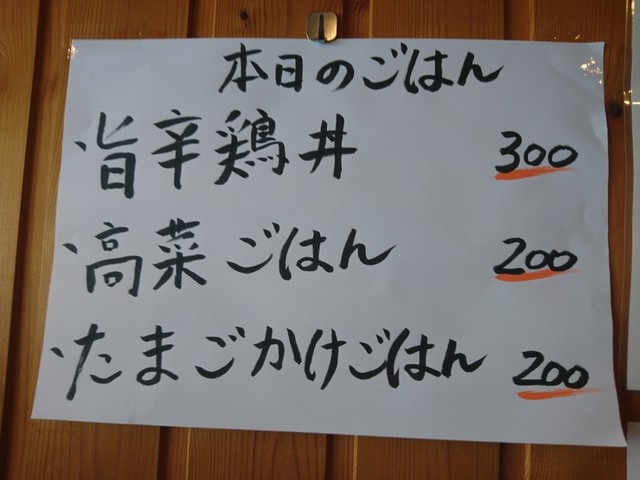 本日のごはん
・旨辛鶏丼 300
・高菜ごはん 200
・たまごかけごはん 200